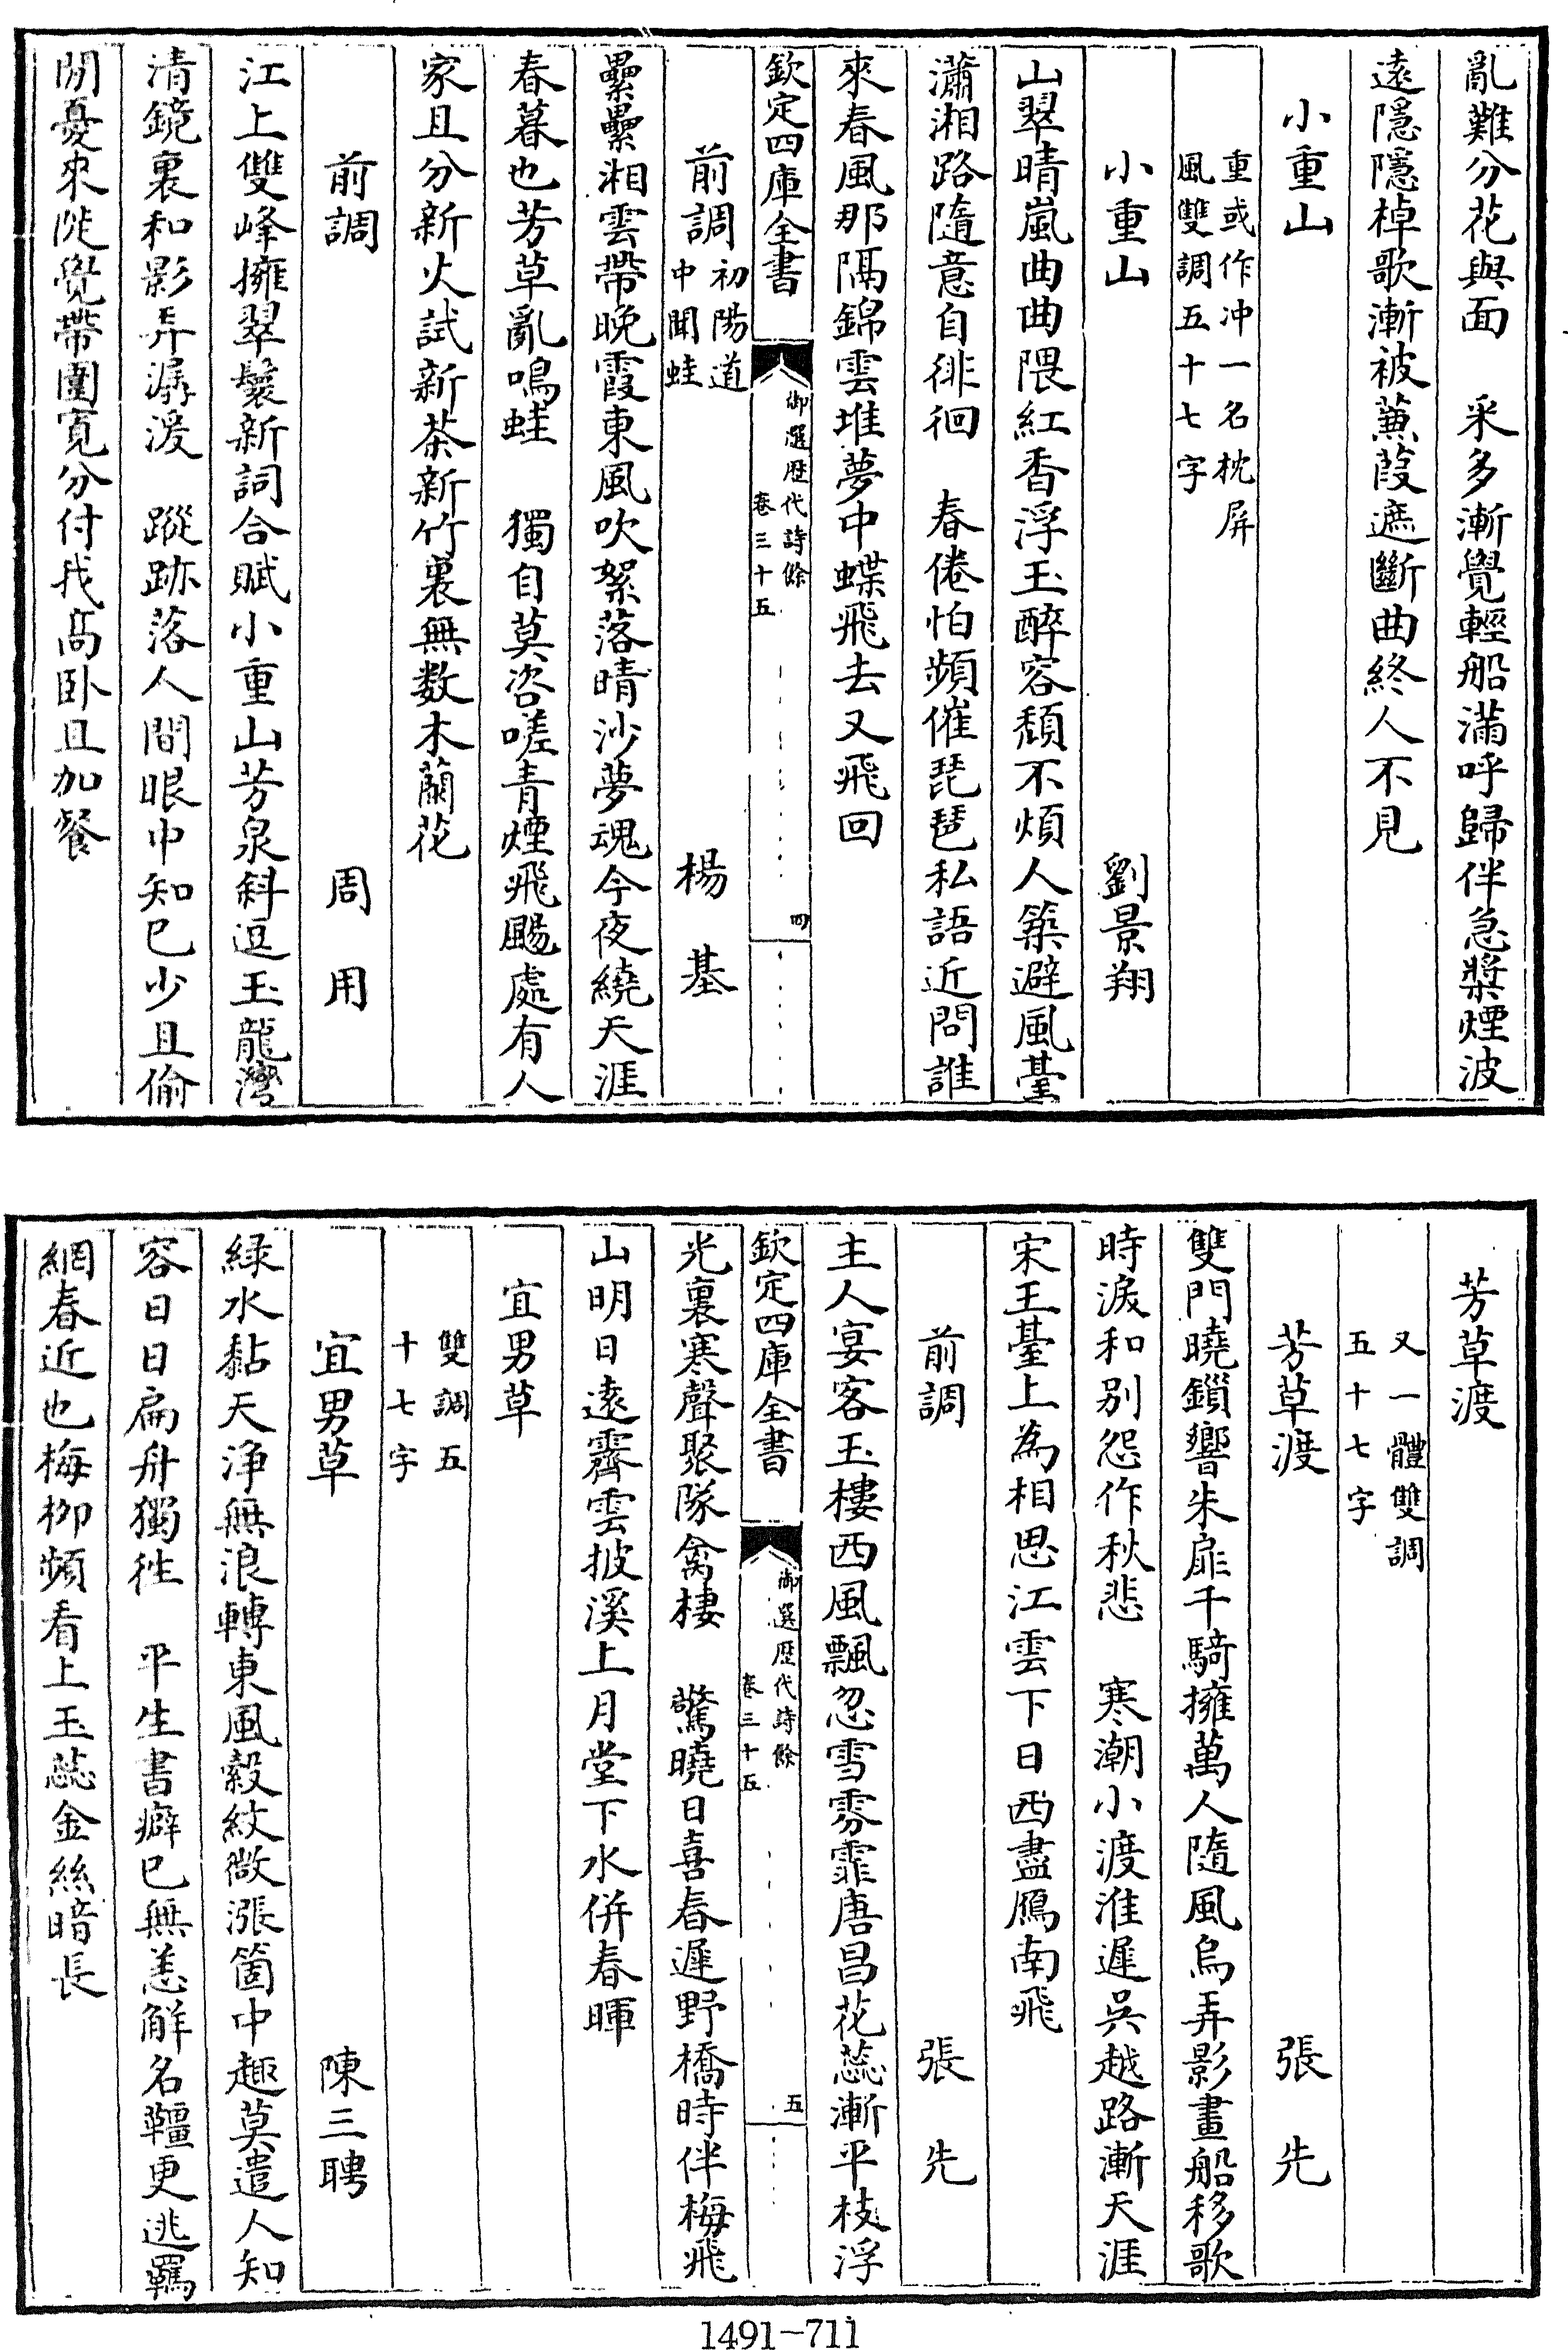 亂難分花與面　采多漸覺輕船滿呼歸伴急槳煙波
遠隱隱棹歌漸被蒹葭遮斷曲終人不見
小重山
重或作冲一名枕屏
風雙調五十七字
小重山　劉景翔
山翠晴嵐曲曲隈紅香浮玉醉容頹不煩人築避風臺
瀟湘路隨意自徘徊　春倦怕頻催琵琶私語近問誰
來春風那隔錦雲堆夢中蝶飛去又飛回
欽定四庫全書
御選歷代詩餘
卷三十五
四
前調　初陽道
中聞蛙
楊　基
纍纍湘雲帶晚霞東風吹絮落晴沙夢魂今夜繞天涯
春暮也芳草亂鳴蛙　獨自莫咨嗟青煙飛颺處有人
家且分新火試新茶新竹裏無數木蘭花
前調　周　用
江上雙峰擁翠鬟新詞合賦小重山芳泉斜逗玉龍灣
清鏡裏和影弄潺湲　蹤跡落人間眼中知已少且偷
閒憂來陡覺帶圍寛分付我高卧且加餐
芳草渡
又一體雙調
五十七字
芳草渡　張　先
雙門曉鎖響朱扉千騎擁萬人隨風烏弄影畫船移歌
時淚和別怨作秋悲　寒潮小渡淮遲吳越路漸天涯
宋王臺上為相思江雲下日西盡鴈南飛
前調　張　先
主人宴客玉樓西風飄忽雪雰霏唐昌花蕊漸平枝浮
欽定四庫全書
御選歷代詩餘
卷三十五
五
光裏寒聲聚隊禽棲　驚曉日喜春遲野橋時伴梅飛
山明日遠霽雲披溪上月堂下水併春暉
宜男草
雙調五
十七字
宜男草　陳三聘
綠水黏天淨無浪轉東風縠紋微漲箇中趣莫遣人知
容日日扁舟獨徃　平生書癖已無恙解名韁更逃羈
網春近也梅柳頻看上玉蕊金絲暗長
1491-711